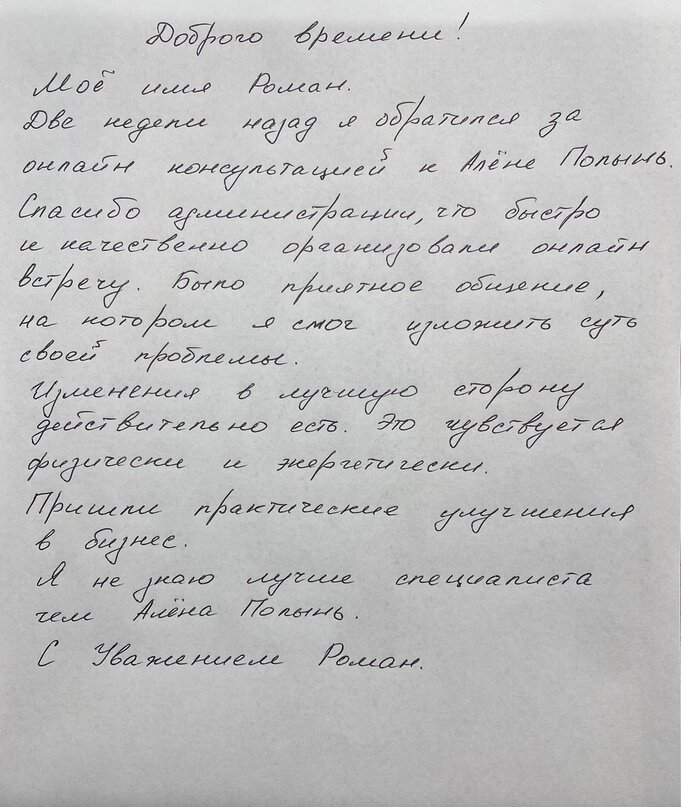 Доброго времени!
Моё имя Роман.
Две недели назад я обратился за
онлайн консультацией к Алёне Полынь.
Спасибо администрации, что быстро
и качественно организовали онлайн
встречу. Было приятное общение,
на котором я смог изложить суть
своей проблемы.
Изменения в лучшую сторону
действительно есть. Это чувствуется
физически и энергетически.
Пришли практические улучшения
в бизнес.
Я не знаю лучше специалиста
чем Алёна Полынь.
С Уважением Роман.